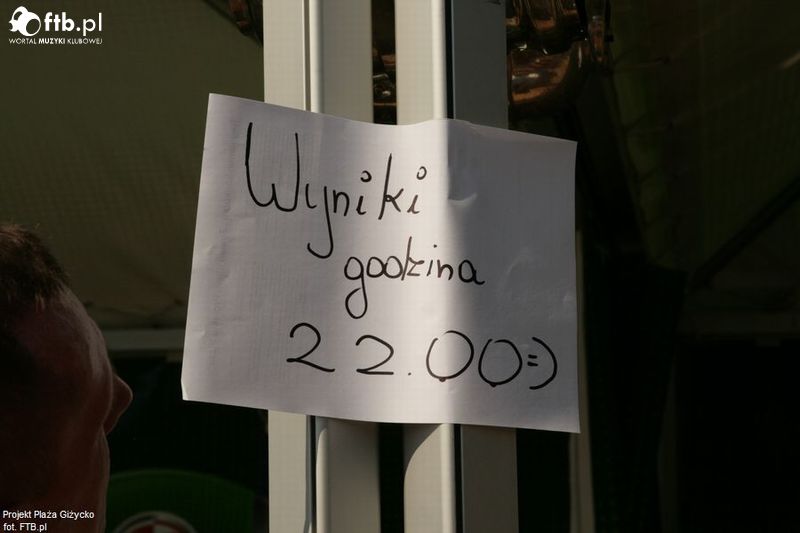 ftb.pl
WORTAL MUZYKI KLUBOWEJ
Wyniki
godzina
22.00=)
Projekt Plaża Giżycko
fot. FTB.pl